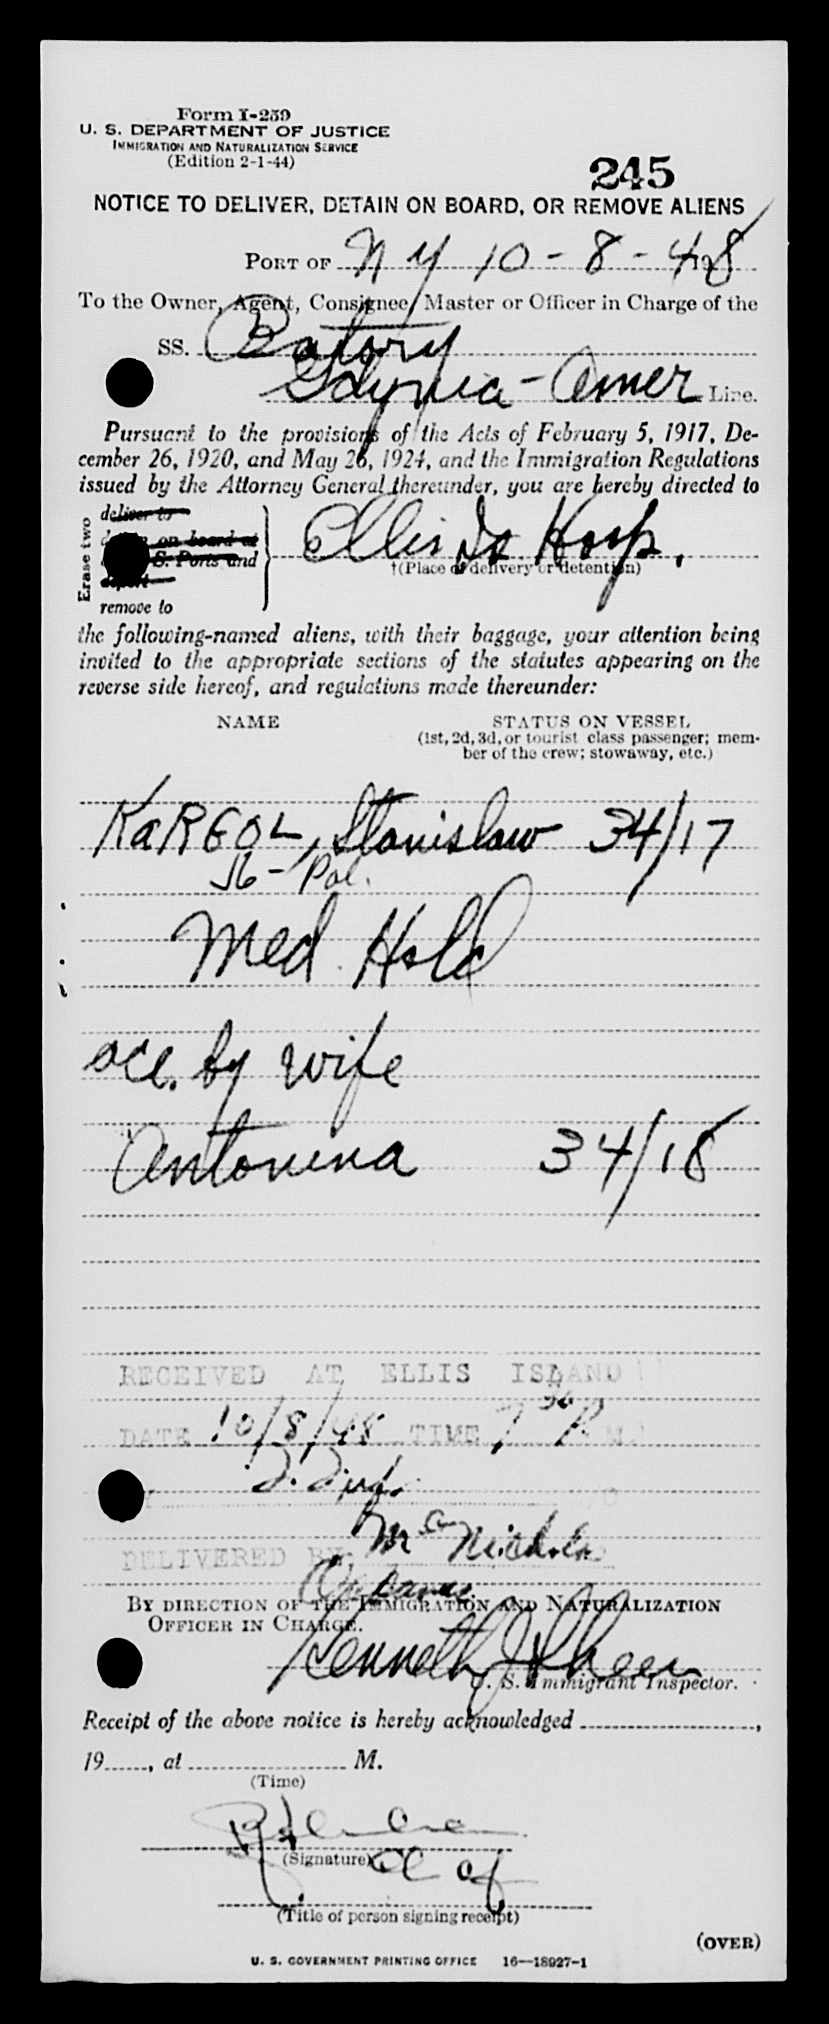 Form I-259
U. S. DEPARTMENT OF JUSTICE
IMMIGRATION AND NATURALIZATION SERVICE
(Edition 2-1-44)
245
NOTICE TO DELIVER, DETAIN ON BOARD, OR REMOVE ALIENS
PORT OF N Y 10-8-48
To the Owner, Agent, Consignee, Master or Officer in Charge of the
SS. Batory
Gdynia-Amer Line.
Pursuant to the provisions of the Acts of February 5, 1917, De-
cember 26, 1920, and May 26, 1924, and the Immigration Regulations
issued by the Attorney General thereunder, you are hereby directed to
Erase two
deliver to
on board at
S. Ports and
Ellis Is Hosp.
†(Place of delivery or detention)
remove to
the following-named aliens, with their baggage, your attention being
invited to the appropriate sections of the statutes appearing on the
reverse side hereof, and regulations made thereunder:
NAME STATUS ON VESSEL
(1st, 2d, 3d, or tourist class passenger; mem-
ber of the crew; stowaway, etc.)
KARGOL, Stanislaw 34/17
Pol.
Med Hold
acc. by wife
Antonina 34/18
RECEIVED AT ELLIS ISLAND
DATE 10/8/48 TIME 7 30 P M.
DELIVERED BY
BY DIRECTION OF THE IMMIGRATION AND NATURALIZATION
OFFICER IN CHARGE.
Kenneth J
U. S. Immigrant Inspector.
Receipt of the above notice is hereby acknowledged ,
19 , at M.
(Time)
(Signature)
(Title of person signing receipt)
(OVER)
U. S. GOVERNMENT PRINTING OFFICE 16—18927-1